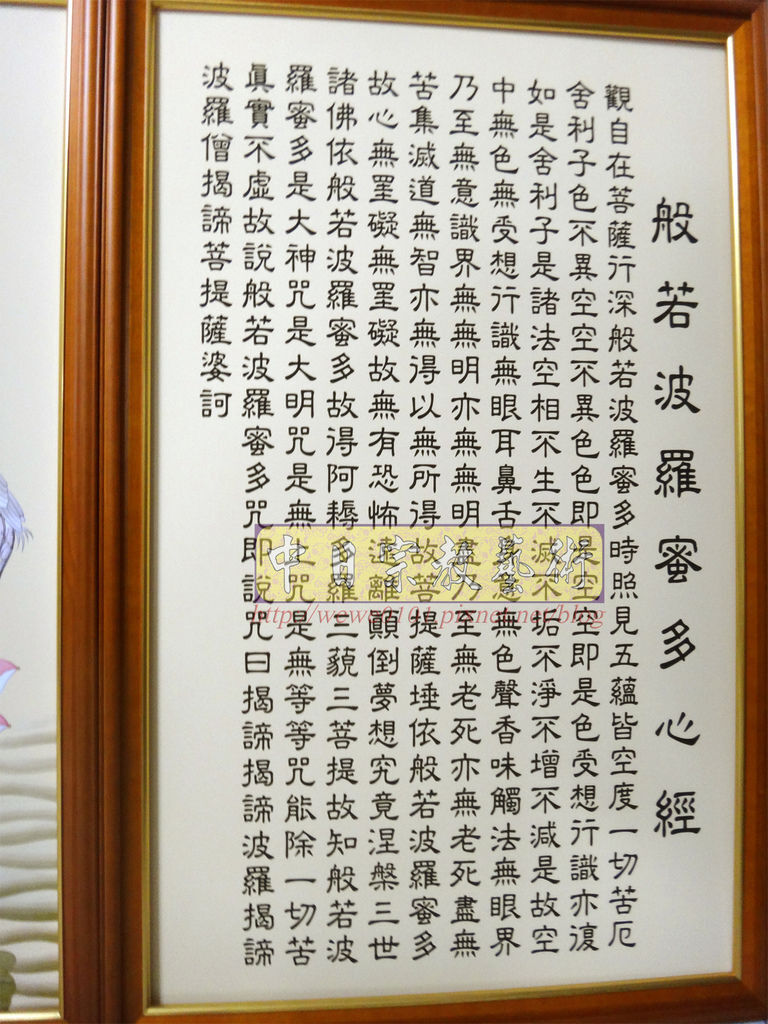 般若波羅蜜多心經
觀自在菩薩行深般若波羅蜜多時照見五蘊皆空度一切苦厄
舍利子色不異空空不異色色即是空空即是色受想行識亦復
如是舍利子是諸法空相不生不滅不垢不淨不增不減是故空
中無色無受想行識無眼耳鼻舌身意無色聲香味觸法無眼界
乃至無意識界無無明亦無無明盡乃至無老死亦無老死盡無
苦集滅道無智亦無得以無所得故菩提薩埵依般若波羅蜜多
故心無罣礙無罣礙故無有恐怖遠離顛倒夢想究竟涅槃三世
諸佛依般若波羅蜜多故得阿耨多羅三藐三菩提故知般若波
羅蜜多是大神咒是大明咒是無上咒是無等等咒能除一切苦
眞實不虛故說般若波羅蜜多咒即說咒曰揭諦揭諦波羅揭諦
波羅僧揭諦菩提薩婆訶
中日宗教藝術
http://wewe0101.pixnet.net/blog